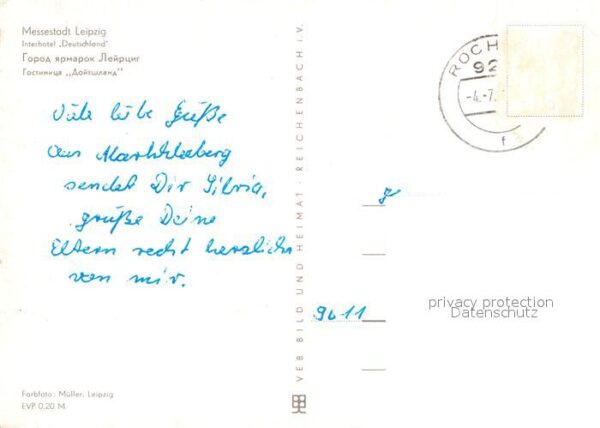 Messestadt Leipzig
Interhotel „Deutschland"
Город ярмарок Лейпциг
Гостиница ,,Дойтшланд"
Viele liebe Grüße
aus Markkleeberg
sendet Dir Silvia,
grüße Deine
Eltern recht herzlich
von mir.
Farbfoto: Müller, Leipzig
EVP 0,20 M.
VEB BILD UND HEIMAT · REICHENBACH i. V.
ROCH
92
-4.-7.
f
9611
privacy protection
Datenschutz